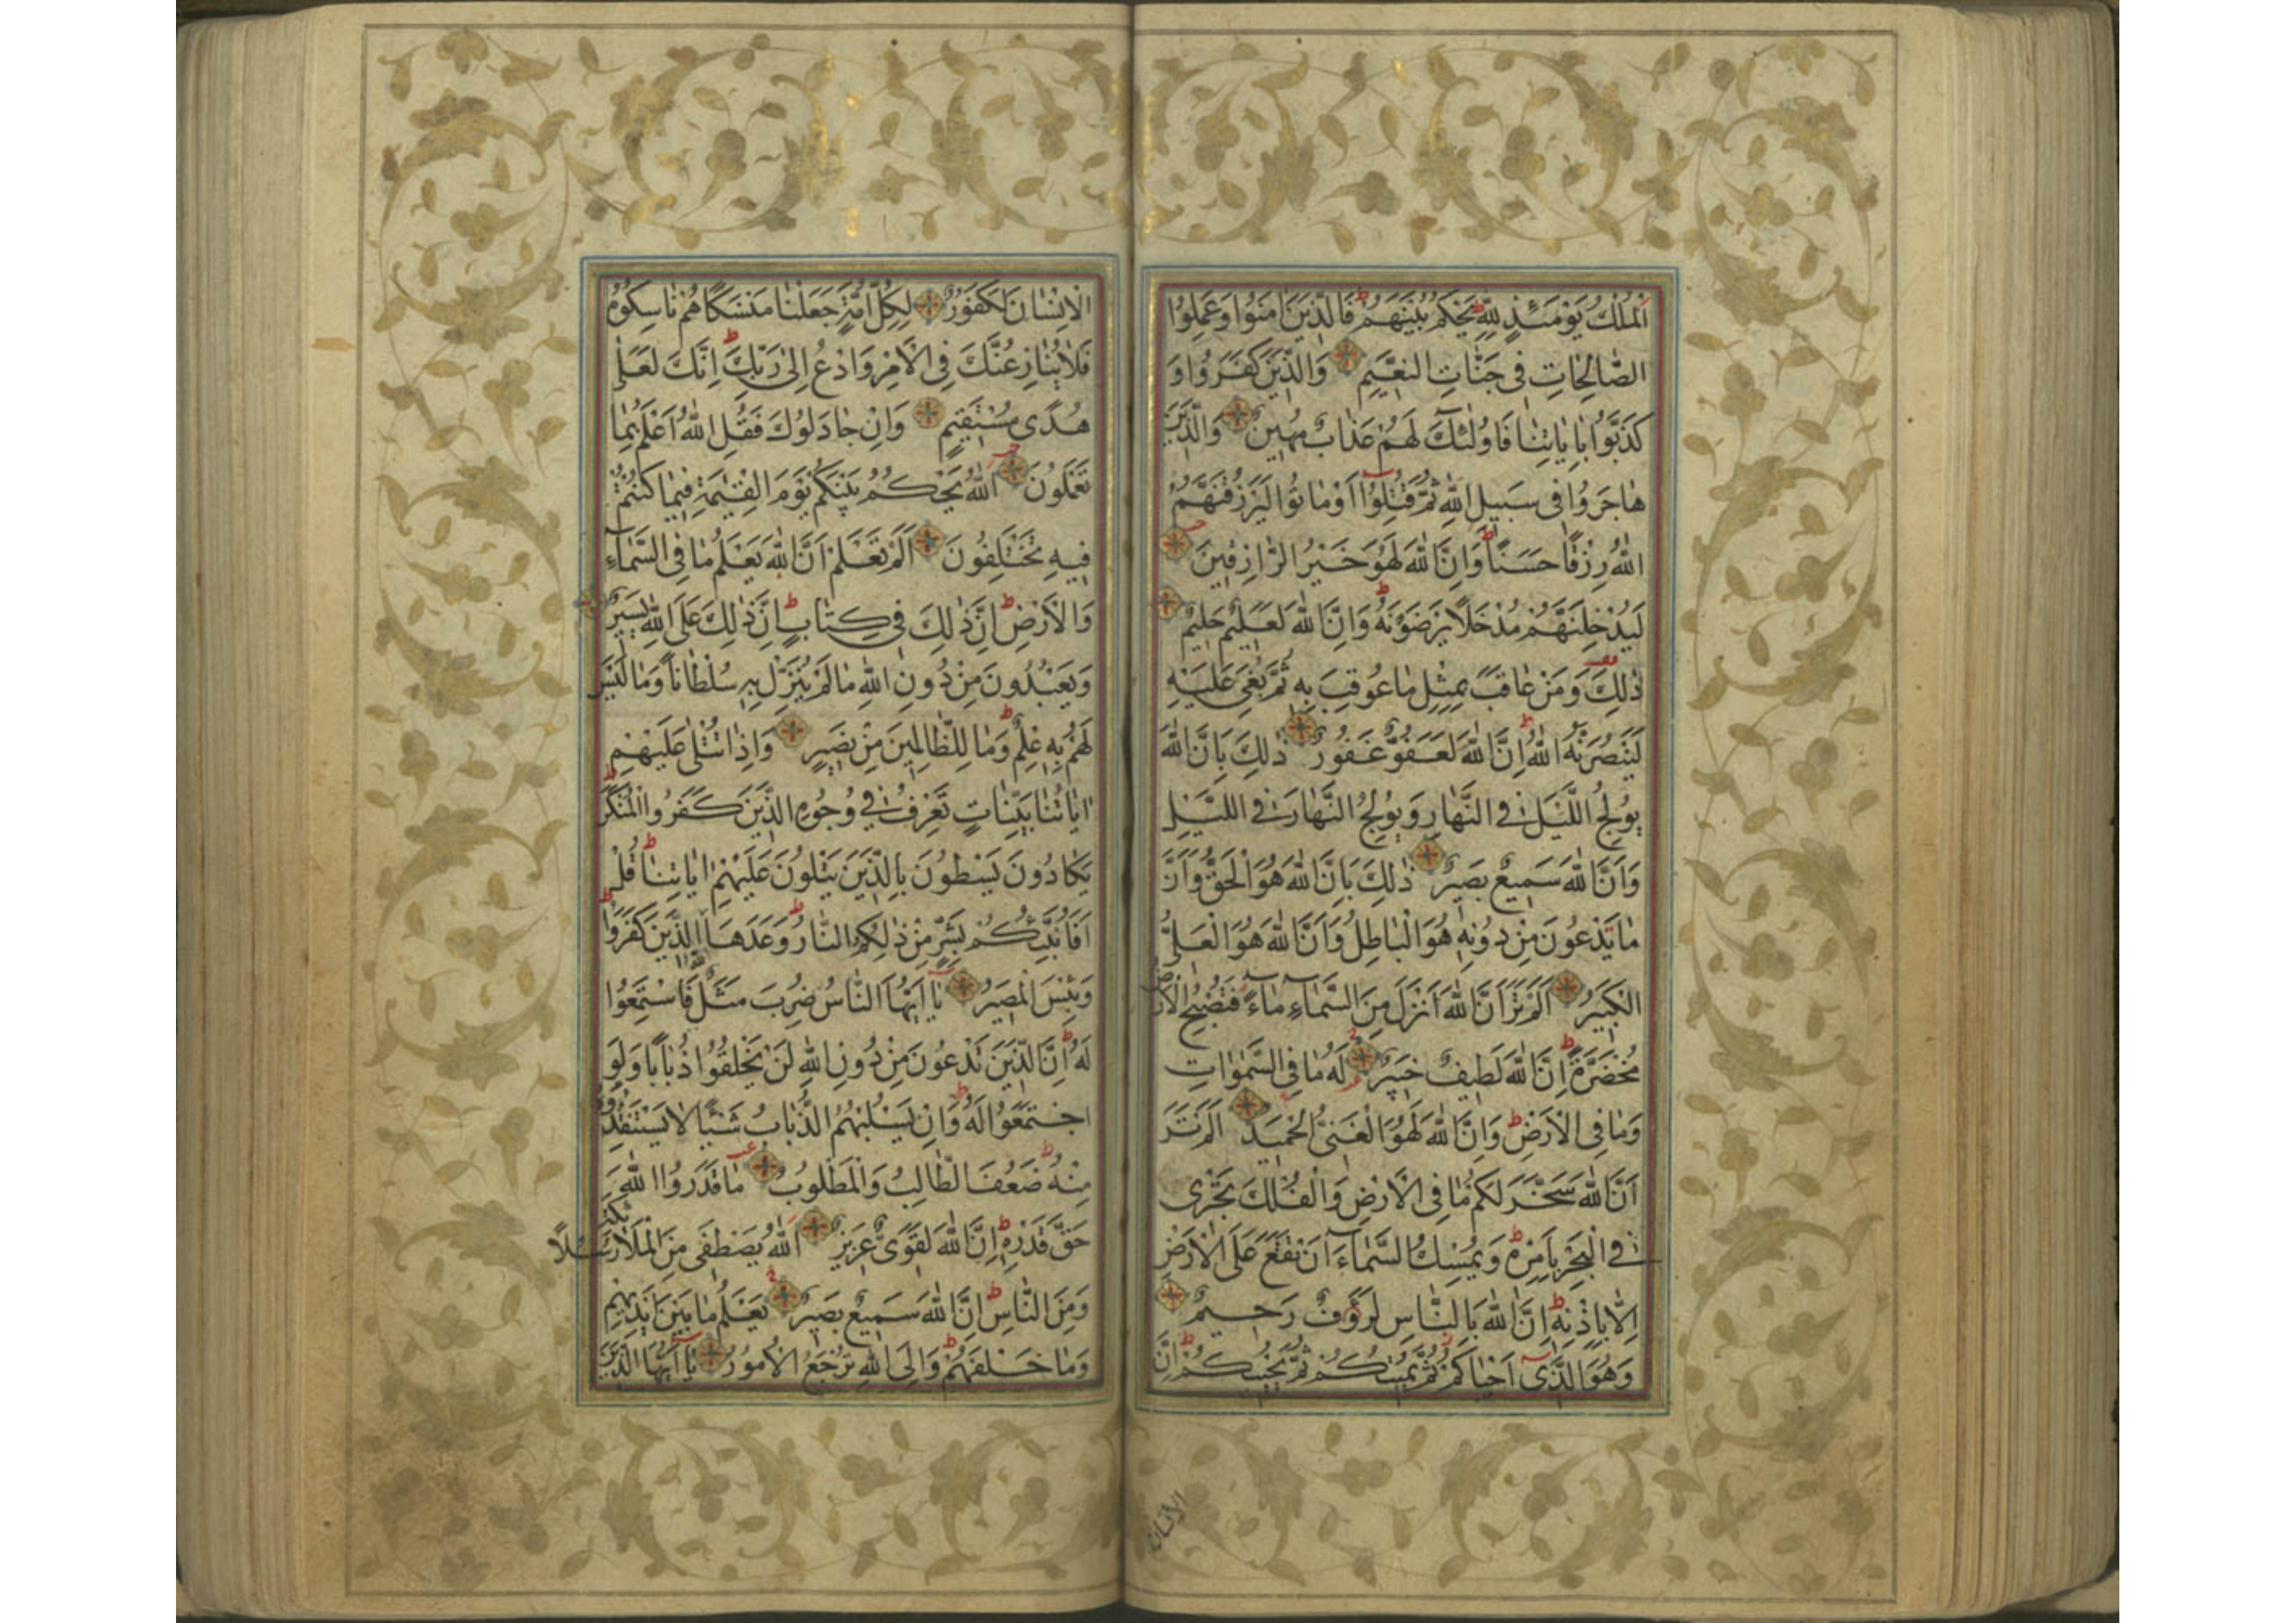 اَلْمُلْكُ يَوْمَئِذٍ لِلّٰهِ يَحْكُمُ بَيْنَهُمْ فَالَّذِينَ اٰمَنُوا وَعَمِلُوا
الصَّالِحَاتِ فِى جَنَّاتِ النَّعِيمِ وَالَّذِينَ كَفَرُوا وَ
كَذَّبُوا بِاٰيَاتِنَا فَاُولٰئِكَ لَهُمْ عَذَابٌ مُهِينٌ وَالَّذِينَ
هَاجَرُوا فِى سَبِيلِ اللّٰهِ ثُمَّ قُتِلُوا اَوْ مَاتُوا لَيَرْزُقَنَّهُمُ
اللّٰهُ رِزْقًا حَسَنًا وَاِنَّ اللّٰهَ لَهُوَ خَيْرُ الرَّازِقِينَ
لَيُدْخِلَنَّهُمْ مُدْخَلًا يَرْضَوْنَهُ وَاِنَّ اللّٰهَ لَعَلِيمٌ حَلِيمٌ
ذٰلِكَ وَمَنْ عَاقَبَ بِمِثْلِ مَا عُوقِبَ بِهِ ثُمَّ بُغِىَ عَلَيْهِ
لَيَنْصُرَنَّهُ اللّٰهُ اِنَّ اللّٰهَ لَعَفُوٌّ غَفُورٌ ذٰلِكَ بِاَنَّ اللّٰهَ
يُولِجُ اللَّيْلَ فِى النَّهَارِ وَيُولِجُ النَّهَارَ فِى اللَّيْلِ
وَاَنَّ اللّٰهَ سَمِيعٌ بَصِيرٌ ذٰلِكَ بِاَنَّ اللّٰهَ هُوَ الْحَقُّ وَاَنَّ
مَا يَدْعُونَ مِنْ دُونِهِ هُوَ الْبَاطِلُ وَاَنَّ اللّٰهَ هُوَ الْعَلِىُّ
الْكَبِيرُ اَلَمْ تَرَ اَنَّ اللّٰهَ اَنْزَلَ مِنَ السَّمَاءِ مَاءً فَتُصْبِحُ الْاَرْضُ
مُخْضَرَّةً اِنَّ اللّٰهَ لَطِيفٌ خَبِيرٌ لَهُ مَا فِى السَّمٰوَاتِ
وَمَا فِى الْاَرْضِ وَاِنَّ اللّٰهَ لَهُوَ الْغَنِىُّ الْحَمِيدُ اَلَمْ تَرَ
اَنَّ اللّٰهَ سَخَّرَ لَكُمْ مَا فِى الْاَرْضِ وَالْفُلْكَ تَجْرِى
فِى الْبَحْرِ بِاَمْرِهِ وَيُمْسِكُ السَّمَاءَ اَنْ تَقَعَ عَلَى الْاَرْضِ
اِلَّا بِاِذْنِهِ اِنَّ اللّٰهَ بِالنَّاسِ لَرَؤُفٌ رَحِيمٌ
وَهُوَ الَّذِى اَحْيَاكُمْ ثُمَّ يُمِيتُكُمْ ثُمَّ يُحْيِيكُمْ اِنَّ
الانسان
الْاِنْسَانَ لَكَفُورٌ لِكُلِّ اُمَّةٍ جَعَلْنَا مَنْسَكًا هُمْ نَاسِكُوهُ
فَلَا يُنَازِعُنَّكَ فِى الْاَمْرِ وَادْعُ اِلٰى رَبِّكَ اِنَّكَ لَعَلٰى
هُدًى مُسْتَقِيمٍ وَاِنْ جَادَلُوكَ فَقُلِ اللّٰهُ اَعْلَمُ بِمَا
تَعْمَلُونَ اَللّٰهُ يَحْكُمُ بَيْنَكُمْ يَوْمَ الْقِيٰمَةِ فِيمَا كُنْتُمْ
فِيهِ تَخْتَلِفُونَ اَلَمْ تَعْلَمْ اَنَّ اللّٰهَ يَعْلَمُ مَا فِى السَّمَاءِ
وَالْاَرْضِ اِنَّ ذٰلِكَ فِى كِتَابٍ اِنَّ ذٰلِكَ عَلَى اللّٰهِ يَسِيرٌ
وَيَعْبُدُونَ مِنْ دُونِ اللّٰهِ مَا لَمْ يُنَزِّلْ بِهِ سُلْطَانًا وَمَا لَيْسَ
لَهُمْ بِهِ عِلْمٌ وَمَا لِلظَّالِمِينَ مِنْ نَصِيرٍ وَاِذَا تُتْلٰى عَلَيْهِمْ
اٰيَاتُنَا بَيِّنَاتٍ تَعْرِفُ فِى وُجُوهِ الَّذِينَ كَفَرُوا الْمُنْكَرَ
يَكَادُونَ يَسْطُونَ بِالَّذِينَ يَتْلُونَ عَلَيْهِمْ اٰيَاتِنَا قُلْ
اَفَاُنَبِّئُكُمْ بِشَرٍّ مِنْ ذٰلِكُمُ النَّارُ وَعَدَهَا اللّٰهُ الَّذِينَ كَفَرُوا
وَبِئْسَ الْمَصِيرُ يَا اَيُّهَا النَّاسُ ضُرِبَ مَثَلٌ فَاسْتَمِعُوا
لَهُ اِنَّ الَّذِينَ تَدْعُونَ مِنْ دُونِ اللّٰهِ لَنْ يَخْلُقُوا ذُبَابًا وَلَوِ
اجْتَمَعُوا لَهُ وَاِنْ يَسْلُبْهُمُ الذُّبَابُ شَيْئًا لَا يَسْتَنْقِذُوهُ
مِنْهُ ضَعُفَ الطَّالِبُ وَالْمَطْلُوبُ مَا قَدَرُوا اللّٰهَ
حَقَّ قَدْرِهِ اِنَّ اللّٰهَ لَقَوِىٌّ عَزِيزٌ اَللّٰهُ يَصْطَفِى مِنَ الْمَلٰئِكَةِ رُسُلًا
وَمِنَ النَّاسِ اِنَّ اللّٰهَ سَمِيعٌ بَصِيرٌ يَعْلَمُ مَا بَيْنَ اَيْدِيهِمْ
وَمَا خَلْفَهُمْ وَاِلَى اللّٰهِ تُرْجَعُ الْاُمُورُ يَا اَيُّهَا الَّذِينَ